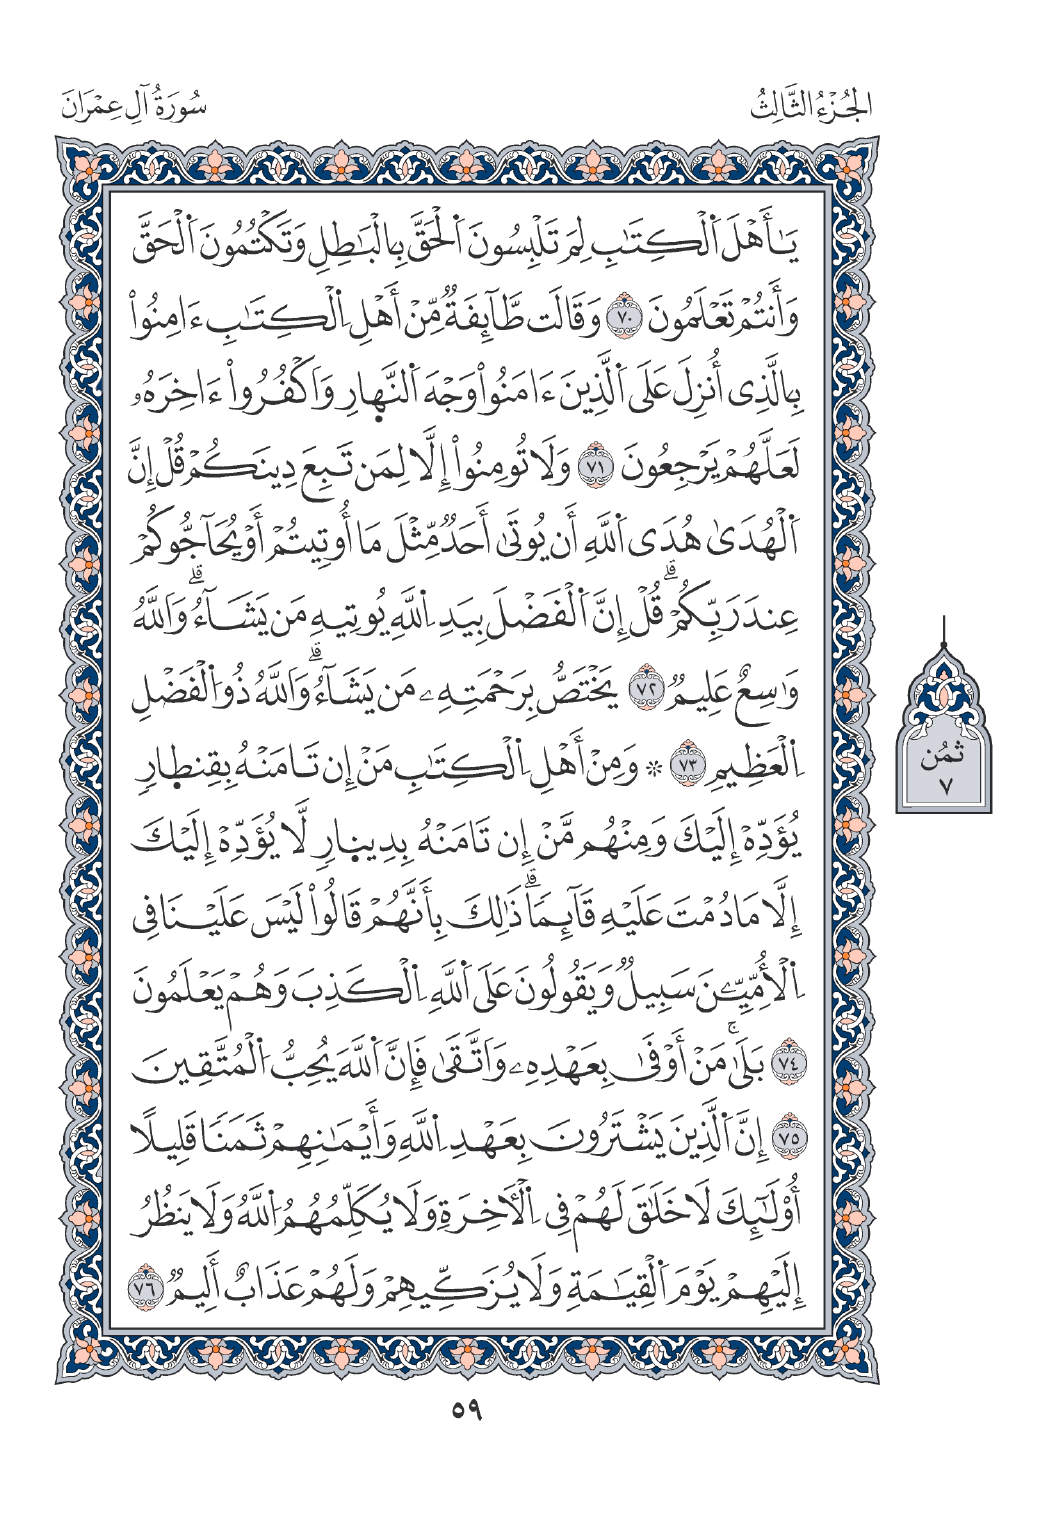 الجُزْءُ الثَّالِثُ
سُورَةُ آلِ عِمْرَانَ
يَٰٓأَهْلَ اَ۬لْكِتَٰبِ لِمَ تَلْبِسُونَ اَ۬لْحَقَّ بِالْبَٰطِلِ وَتَكْتُمُونَ اَ۬لْحَقَّ
وَأَنتُمْ تَعْلَمُونَ ٧٠ وَقَالَت طَّآئِفَةٌ مِّنْ أَهْلِ اِ۬لْكِتَٰبِ ءَامِنُواْ
بِالَّذِى أُنزِلَ عَلَى اَ۬لَّذِينَ ءَامَنُواْ وَجْهَ اَ۬لنَّهارِ وَاَكْفُرُواْ ءَاخِرَهُۥ
لَعَلَّهُمْ يَرْجِعُونَ ٧١ وَلَا تُومِنُواْ إِلَّا لِمَن تَبِعَ دِينَكُمْ قُلْ إِنَّ
اَ۬لْهُدَىٰ هُدَى اَ۬للَّهِ أَن يُوتَىٰ أَحَدٌ مِّثْلَ مَا أُوتِيتُمْ أَوْ يُحَآجُّوكُمْ
عِندَ رَبِّكُمْۗ قُلْ إِنَّ اَ۬لْفَضْلَ بِيَدِ اِ۬للَّهِ يُوتِيهِ مَن يَشَآءُۗ وَاَللَّهُ
وَٰسِعٌ عَلِيمٌ ٧٢ يَخْتَصُّ بِرَحْمَتِهِۦ مَن يَشَآءُۗ وَاَللَّهُ ذُو اُ۬لْفَضْلِ
اِ۬لْعَظِيمِ ٧٣ ۞ وَمِنْ أَهْلِ اِ۬لْكِتَٰبِ مَنْ إِن تَامَنْهُ بِقِنطارٍ
يُؤَدِّهْ إِلَيْكَ وَمِنْهُم مَّنْ إِن تَامَنْهُ بِدِينارٍ لَّا يُؤَدِّهْ إِلَيْكَ
إِلَّا مَا دُمْتَ عَلَيْهِ قَآئِمًاۗ ذَٰلِكَ بِأَنَّهُمْ قَالُواْ لَيْسَ عَلَيْنَا فِى
اِ۬لْأُمِّيِّـۧنَ سَبِيلٌ وَيَقُولُونَ عَلَى اَ۬للَّهِ اِ۬لْكَذِبَ وَهُمْ يَعْلَمُونَ
٧٤ بَلَىٰۚ مَنْ أَوْفَىٰ بِعَهْدِهِۦ وَاَتَّقَىٰ فَإِنَّ اَ۬للَّهَ يُحِبُّ اُ۬لْمُتَّقِينَ
٧٥ إِنَّ اَ۬لَّذِينَ يَشْتَرُونَ بِعَهْدِ اِ۬للَّهِ وَأَيْمَٰنِهِمْ ثَمَنًا قَلِيلًا
أُوْلَٰٓئِكَ لَا خَلَٰقَ لَهُمْ فِى اِ۬لْأٓخِرَةِ وَلَا يُكَلِّمُهُمُ اُ۬للَّهُ وَلَا يَنظُرُ
إِلَيْهِمْ يَوْمَ اَ۬لْقِيَٰمَةِ وَلَا يُزَكِّيهِمْ وَلَهُمْ عَذَابٌ أَلِيمٌ ٧٦
ثُمُن
٧
٥٩